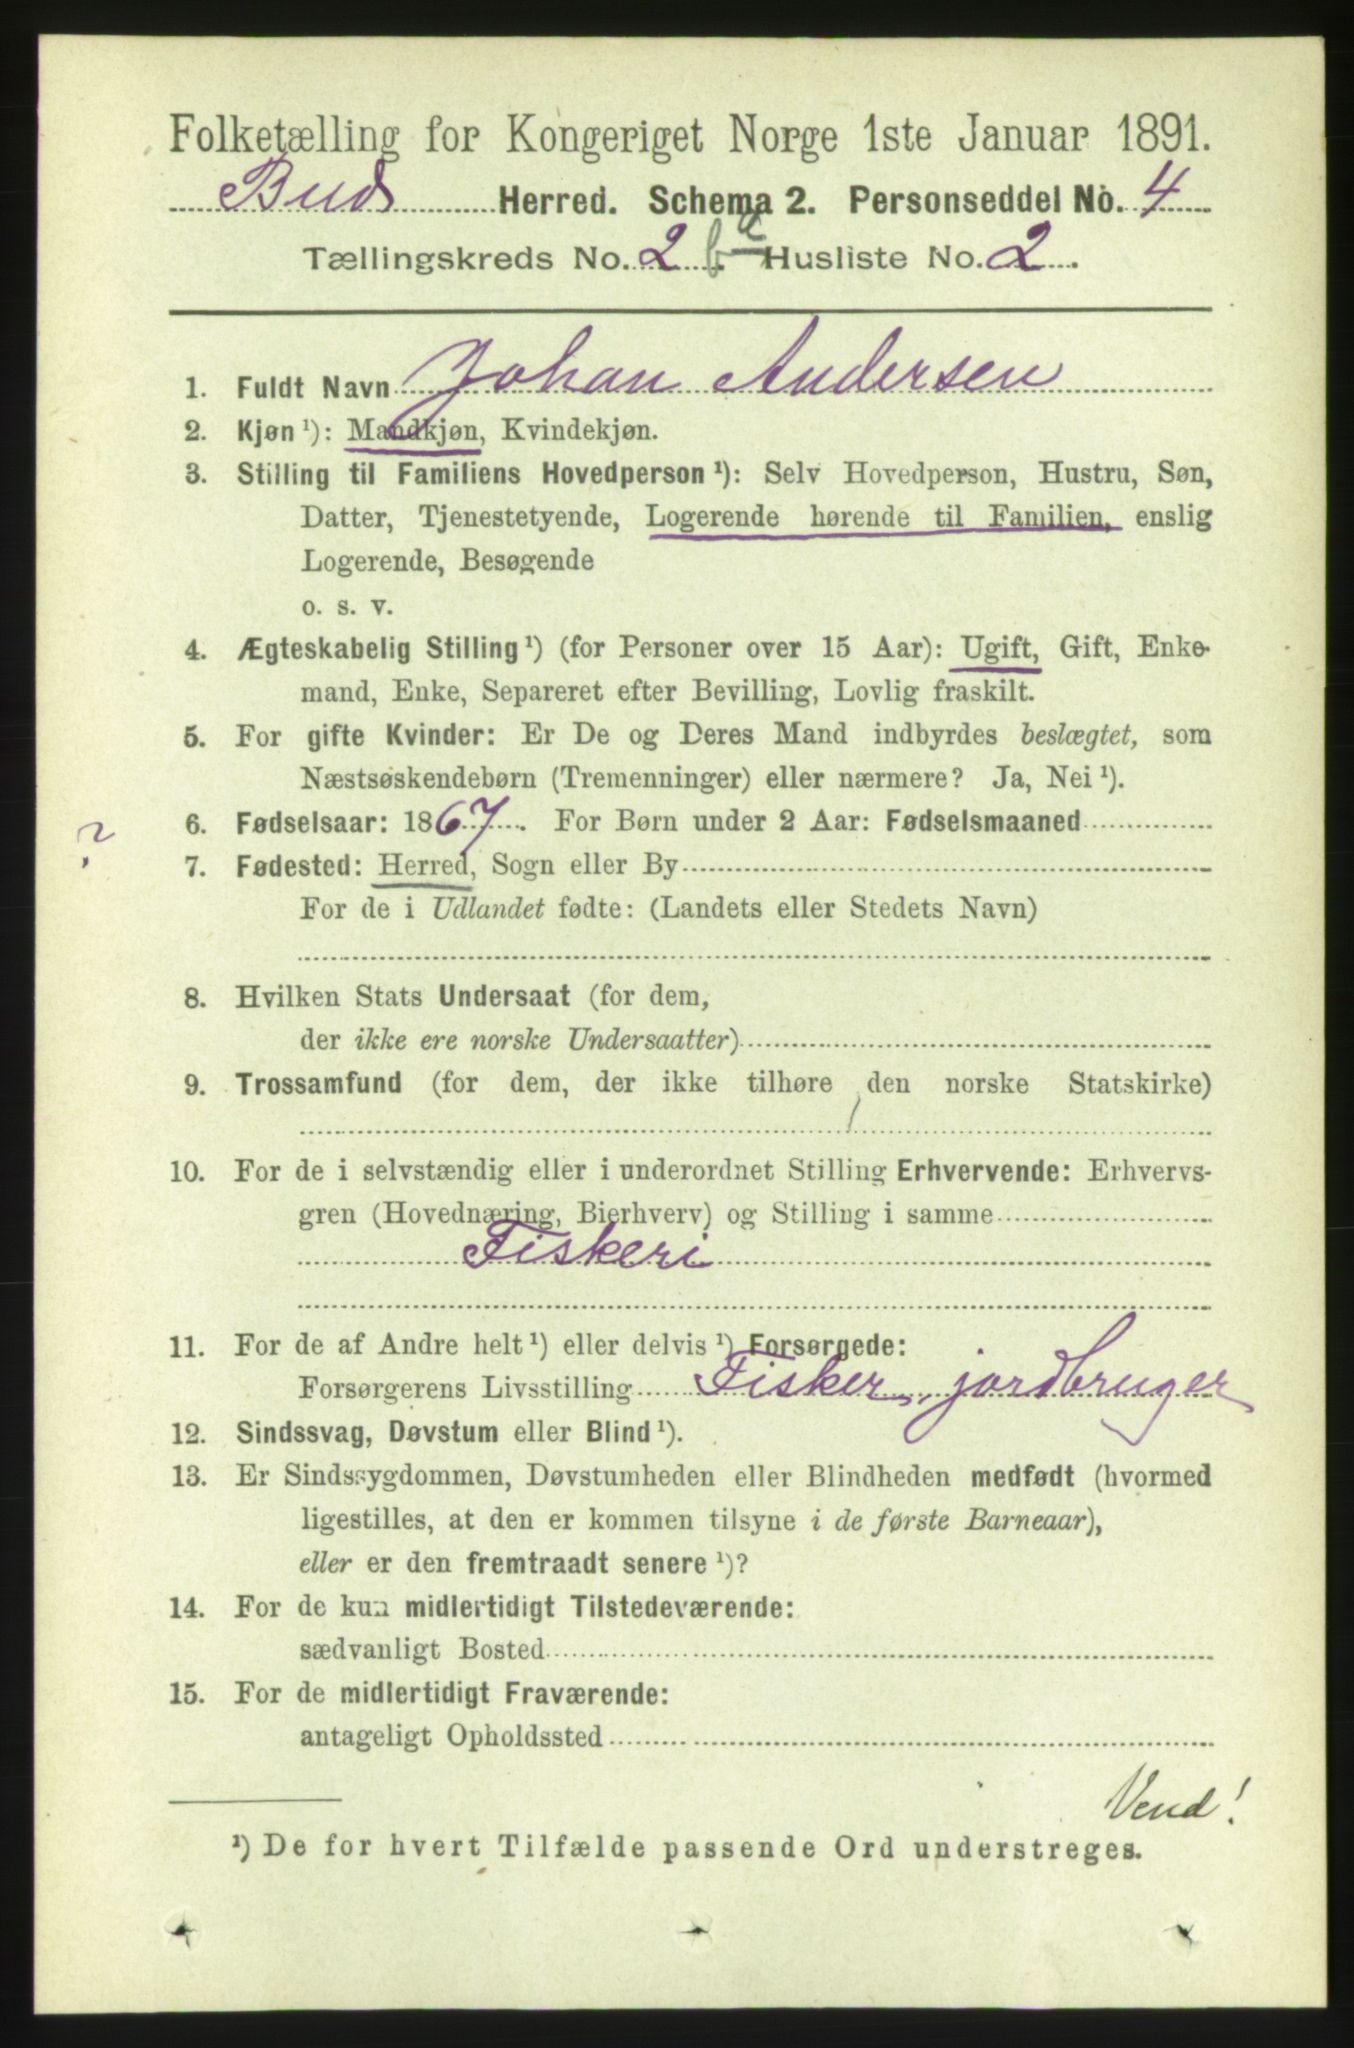 Folketælling for Kongeriget Norge 1ste Januar 1891.
Bud Herred. Schema 2. Personseddel No. 4
Tællingskreds No. 2 b a Husliste No. 2.
1. Fuldt Navn Johan Andersen
2. Kjøn ¹): Mandkjøn, Kvindekjøn.
3. Stilling til Familiens Hovedperson ¹): Selv Hovedperson, Hustru, Søn,
Datter, Tjenestetyende, Logerende hørende til Familien, enslig
Logerende, Besøgende
o. s. v.
4. Ægteskabelig Stilling ¹) (for Personer over 15 Aar): Ugift, Gift, Enke-
mand, Enke, Separeret efter Bevilling, Lovlig fraskilt.
5. For gifte Kvinder: Er De og Deres Mand indbyrdes beslægtet, som
Næstsøskendebørn (Tremenninger) eller nærmere? Ja, Nei ¹).
6. Fødselsaar: 1867. For Børn under 2 Aar: Fødselsmaaned
?
7. Fødested: Herred, Sogn eller By
For de i Udlandet fødte: (Landets eller Stedets Navn)
8. Hvilken Stats Undersaat (for dem,
der ikke ere norske Undersaatter)
9. Trossamfund (for dem, der ikke tilhøre den norske Statskirke)
10. For de i selvstændig eller i underordnet Stilling Erhvervende: Erhvervs-
gren (Hovednæring, Bierhverv) og Stilling i samme
Fiskeri
11. For de af Andre helt ¹) eller delvis ¹) Forsørgede:
Forsørgerens Livsstilling Fisker, jordbruger
12. Sindssvag, Døvstum eller Blind ¹).
13. Er Sindssygdommen, Døvstumheden eller Blindheden medfødt (hvormed
ligestilles, at den er kommen tilsyne i de første Barneaar),
eller er den fremtraadt senere ¹)?
14. For de kun midlertidigt Tilstedeværende:
sædvanligt Bosted
15. For de midlertidigt Fraværende:
antageligt Opholdssted
Vend!
¹) De for hvert Tilfælde passende Ord understreges.